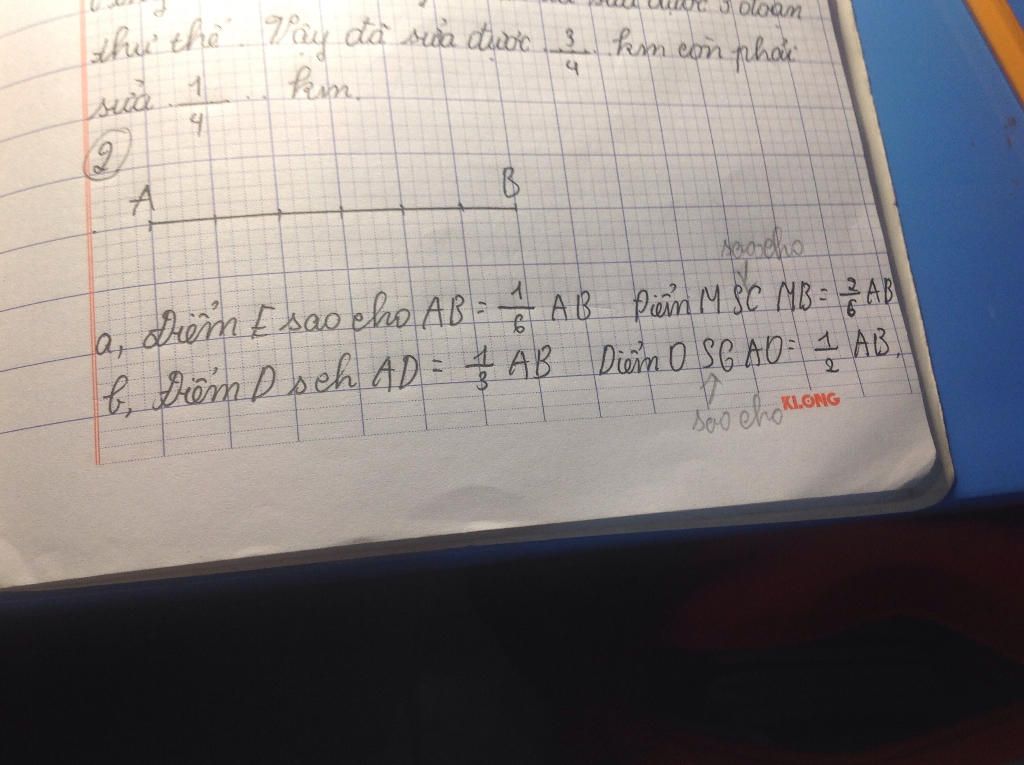 thứ thế. Vậy đã sửa được 3/4 km còn phải
sửa 1/4 km.
2
A B
sao cho
a, Điểm E sao cho AB = 1/6 AB Điểm M SC MB = 2/6 AB
b, Điểm D sch AD = 1/3 AB Điểm O SG AO = 1/2 AB.
sao cho KLONG